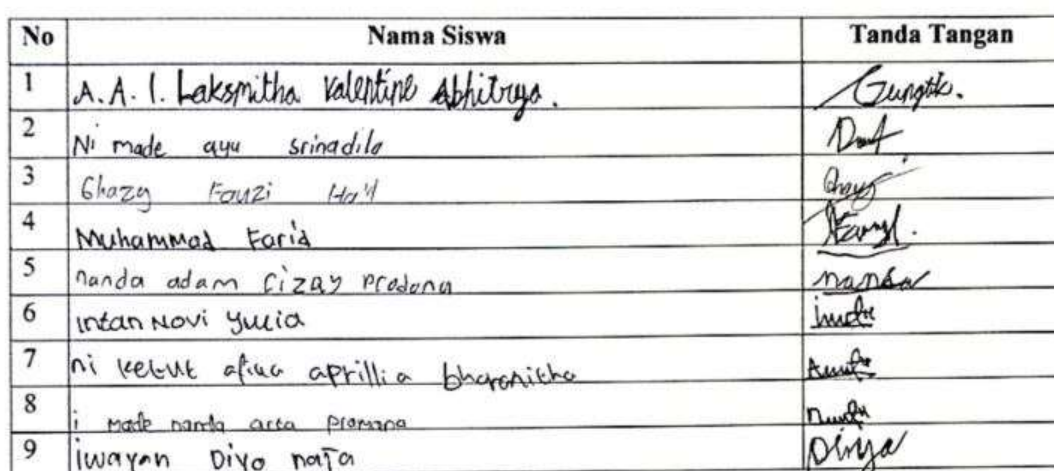 No Nama Siswa Tanda Tangan
1 A.A.I. Laksmitha Valentine Abhitrya. Gungtik.
2 Ni made ayu srinadila
3 Ghazy Fauzi Ha'il Ghazy
4 Muhammad Farid Farid.
5 nanda adam rizqy nanda
6 intan Novi yulia
7 ni ketut aprillia bharanitha
8 i made nanda arta pramana
9 i wayan Divo nata